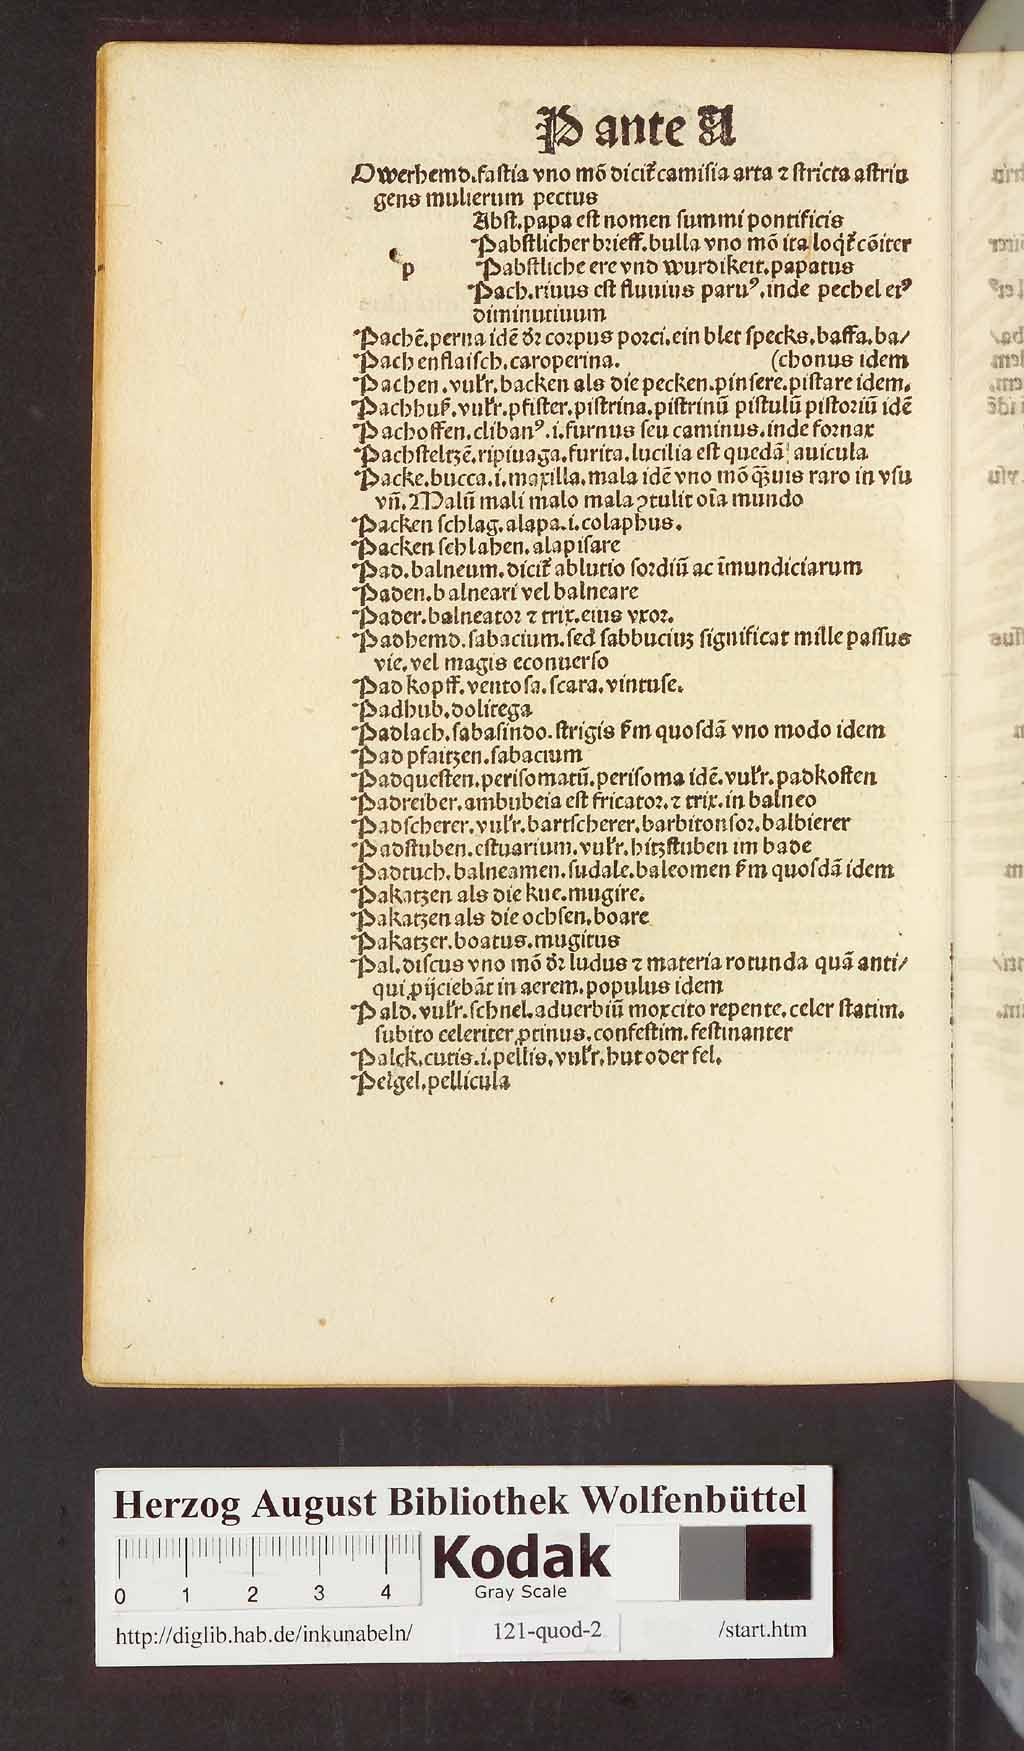 P ante A
Owerhemd.fastia vno mō dicit᷑ camisia arta ⁊ stricta astrin
gens mulierum pectus
Abst.papa est nomen summi pontificis
Pabstlicher brieff.bulla vno mō ita loqt᷑ cōiter
p
Pabstliche ere vnd wurdikeit.papatus
Pach.riuus est fluuius paruꝰ.inde pechel eiꝰ
diminutiuum
Pachē.perna idē dr̄ corpus porci.ein blet specks.baffa.ba/
Pachenflaisch.caroperina. (chonus idem
Pachen.vulr̄.backen als die pecken.pinsere.pistare idem.
Pachhuß.vulr̄.pfister.pistrina.pistrinū pistulū pistoriū idē
Pachoffen.clibanꝰ.i.furnus seu caminus.inde fornax
Pachsteltzē.ripiuaga.furita.lucilia est quedā auicula
Packe.bucca.i.maxilla.mala idē vno mō qꝫuis raro in vsu
vn̄.Malū mali malo mala ꝯtulit oīa mundo
Packen schlag.alapa.i.colaphus.
Packen schlahen.alapisare
Pad.balneum.dicit᷑ ablutio sordiū ac īmundiciarum
Paden.balneari vel balneare
Pader.balneator ⁊ trix.eius vxor.
Padhemd.sabacium.sed sabbuciuꝫ significat mille passus
vie.vel magis econuerso
Padkopff.ventosa.scara.vintuse.
Padhub.dolitega
Padlach.sabasindo.strigis ẜm quosdā vno modo idem
Padpfaitzen.sabacium
Padquesten.perisomatū.perisoma idē.vulr̄.padkosten
Padreiber.ambubeia est fricator.⁊ trix.in balneo
Padscherer.vulr̄.bartscherer.barbitonsor.balbierer
Padstuben.estuarium.vulr̄.hitzstuben im bade
Padtuch.balneamen.sudale.baleomen ẜm quosdā idem
Pakatzen als die kue.mugire.
Pakatzen als die ochsen.boare
Pakatzer.boatus.mugitus
Pal.discus vno mō dr̄ ludus ⁊ materia rotunda quā anti/
qui ꝓijciebāt in aerem.populus idem
Pald.vulr̄.schnel.aduerbiū mox cito repente.celer statim.
subito celeriter ꝓtinus.confestim.festinanter
Palck.cutis.i.pellis.vulr̄.hut oder fel.
Pelgel.pellicula
Herzog August Bibliothek Wolfenbüttel
0 1 2 3 4
Kodak
Gray Scale
http://diglib.hab.de/inkunabeln/ 121-quod-2 /start.htm